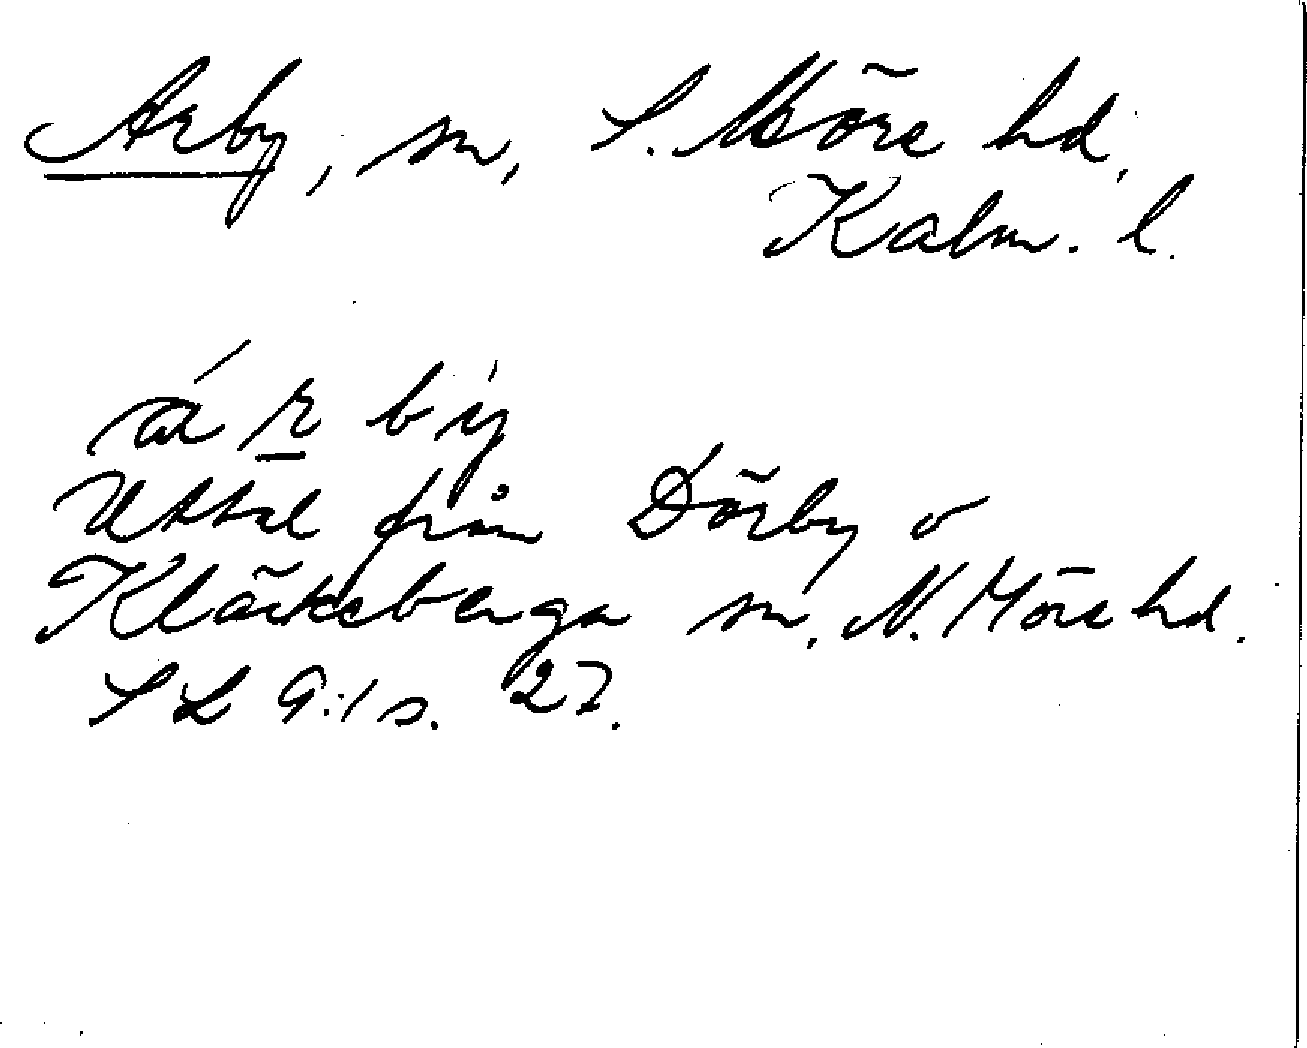 Arby, sn, S. Möre hd,
Kalm. l.
år by
Uttal från Dörby o
Kläckeberga sn, N. Möre hd.
SL 9:1 s. 27.